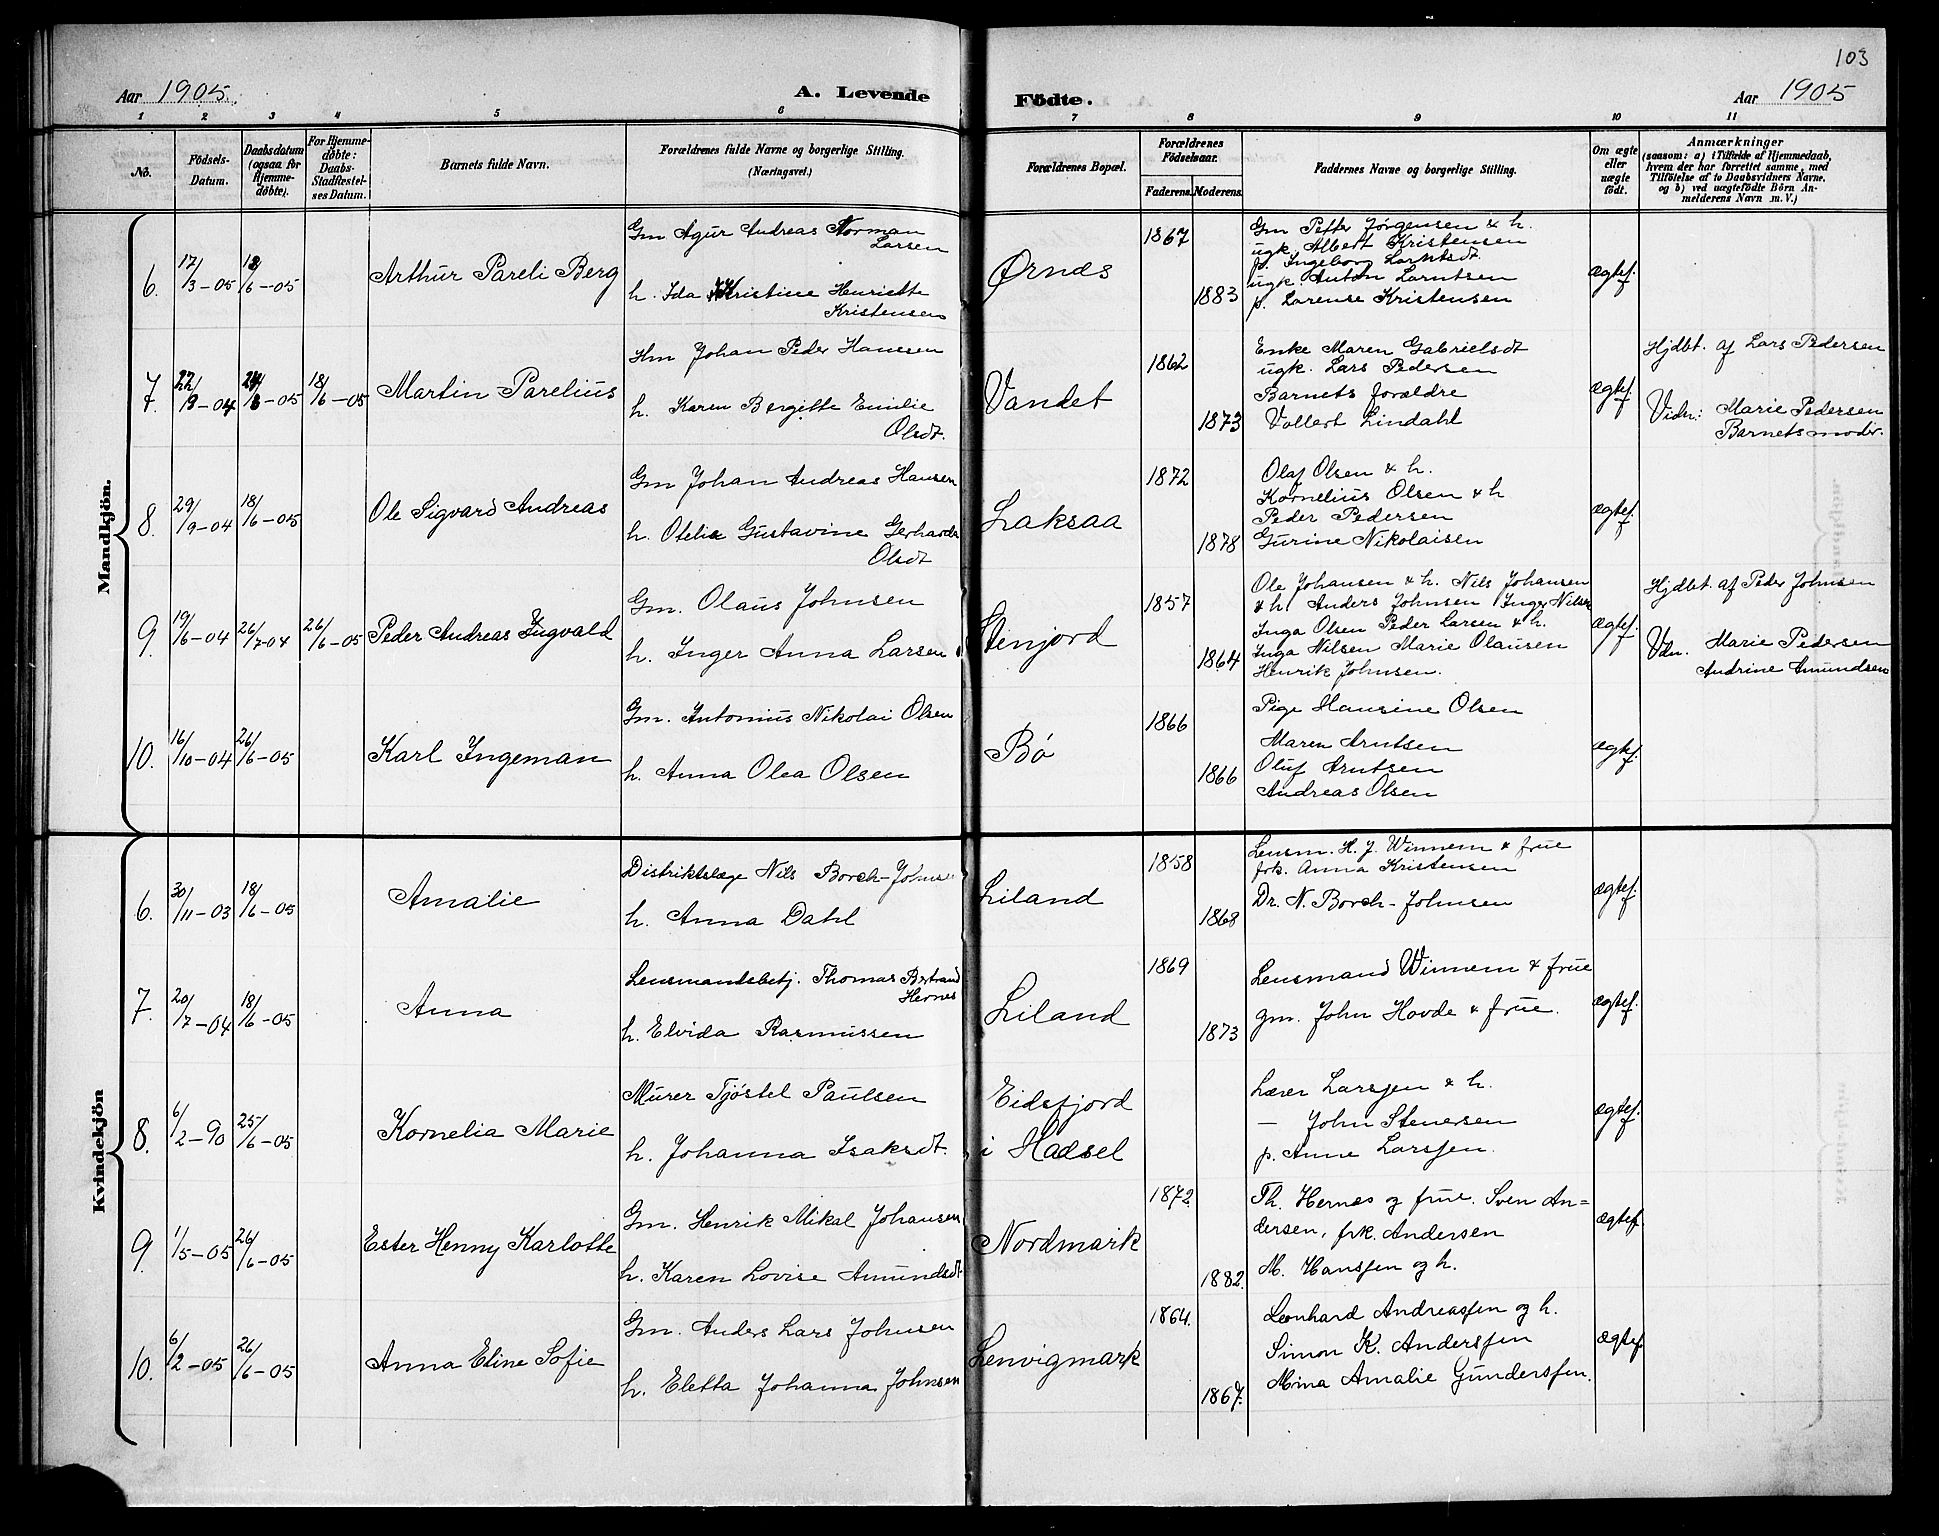 103
Aar 1905.
A. Levende
Födte.
Aar 1905
1 2 3 4 5 6 7 8 9 10 11
No.
Födsels-
Datum.
Daabsdatum
(ogsaa for
Hjemme-
døbte).
For Hjemme-
døbte:
Daabs-
Stadfæstel-
ses Datum.
Barnets fulde Navn.
Forældrenes fulde Navne og borgerlige Stilling.
(Næringsvei.)
Forældrenes Bopæl.
Forældrenes
Födselsaar.
Faderens. Moderens.
Faddernes Navne og borgerlige Stilling.
Om ægte
eller
uægte
födt.
Anmærkninger
(saasom: a) i Tilfælde af Hjemmedaab,
hvem der har forrettet samme, med
Tilföielse af to Daabsvidners Navne,
og b) ved uægtefödte Börn An-
melderens Navn m. V.)
Mandkjön.
6. 17/3-05 18/6-05
Arthur Pareli Berg
Gm Agur Andreas Norman
Larsen
h. Ida Kristine Henriette
Kristensen
Ørnes
1867
1883
Gm Petter Jørgensen & h.
ugk. Albert Kristensen
p. Ingeborg Larntsdt.
ugk. Anton Larntsen
p. Lorense Kristensen
ægtef.
7. 22/9-04 18/6-05
Martin Parelius
Hm Johan Peder Hansen
h. Karen Bergitte Emilie
Olsdt.
Vandet
1862
1873
Enke Maren Gabrielsdt
ugk. Lars Pedersen
Barnets forældre
Vollert Lindahl
ægtef.
Hjdbt. af Lars Pedersen
Vidn: Marie Pedersen
Barnets moder.
8. 29/9-04 18/6-05
Ole Sigvard Andreas
Gm Johan Andreas Hansen
h. Otelie Gustavine Gerharda
Olsdt
Laksaa
1872
1878
Olaf Olsen & h.
Kornelius Olsen & h
Peder Pedersen
Gurine Nikolaisen
ægtef.
9. 19/6-04 26/7-04 26/6-05
Peder Andreas Ingvald
Gm. Olaus Johnsen
h. Inger Anna Larsen
Stenjord
1857
1864
Ole Johansen & h. Nils Johansen
& h. Anders Johnsen Inger Nilsen
Inga Olsen Peder Larsen & h.
Inga Nilsen Marie Olausen
Henrik Johnsen.
ægtef.
Hjdbt. af Peder Johnsen
Vdn. Marie Pedersen
Andrine Amundsen
10. 16/10-04 26/6-05
Karl Ingeman
Gm. Antonius Nikolai Olsen
h. Anna Olea Olsen
Bø
1866
1866
Pige Hansine Olsen
Maren Arntsen
Oluf Arntsen
Andreas Olsen
ægtef.
Kvindekjön
6. 30/11-03 18/6-05
Amalie
Distriktslæge Nils Borch-Johnsen
h. Anna Dahl
Liland
1858
1868
Lensm. H. J. Winnem & frue
frk. Anna Kristensen
Dr. N. Borch-Johnsen
ægtef.
7. 20/7-04 18/6-05
Anna
Lensmandsbetj. Thomas Bertrand
Hernes
h. Elvida Rasmussen
Liland
1869
1873
Lensmand Winnem & frue
gm. John Hovde & frue.
ægtef.
8. 6/2-90 25/6-05
Kornelia Marie
Murer Tjöstel Paulsen
h. Johanna Isaksdt.
Eidsfjord
i Hadsel
Lærer Larssen & h.
— John Stenersen
p. Anne Larssen.
ægtef.
9. 1/5-05 26/6-05
Ester Henny Karlotte
Gm. Henrik Mikal Johansen
h. Karen Lovise Amundsdt.
Nordmark
1872
1882.
Th. Hernes og frue. Sven An=
dersen, frk. Andersen
M. Hanssen og h.
ægtef.
10. 6/2-05 26/6-05
Anna Eline Sofie
Gm. Anders Lars Johnsen
h. Eletta Johanna Johnsen
Lenvigmark
1864.
1867.
Leonhard Andreassen og h.
Simon K. Anderssen
Mina Amalie Gunderssen.
ægtef.